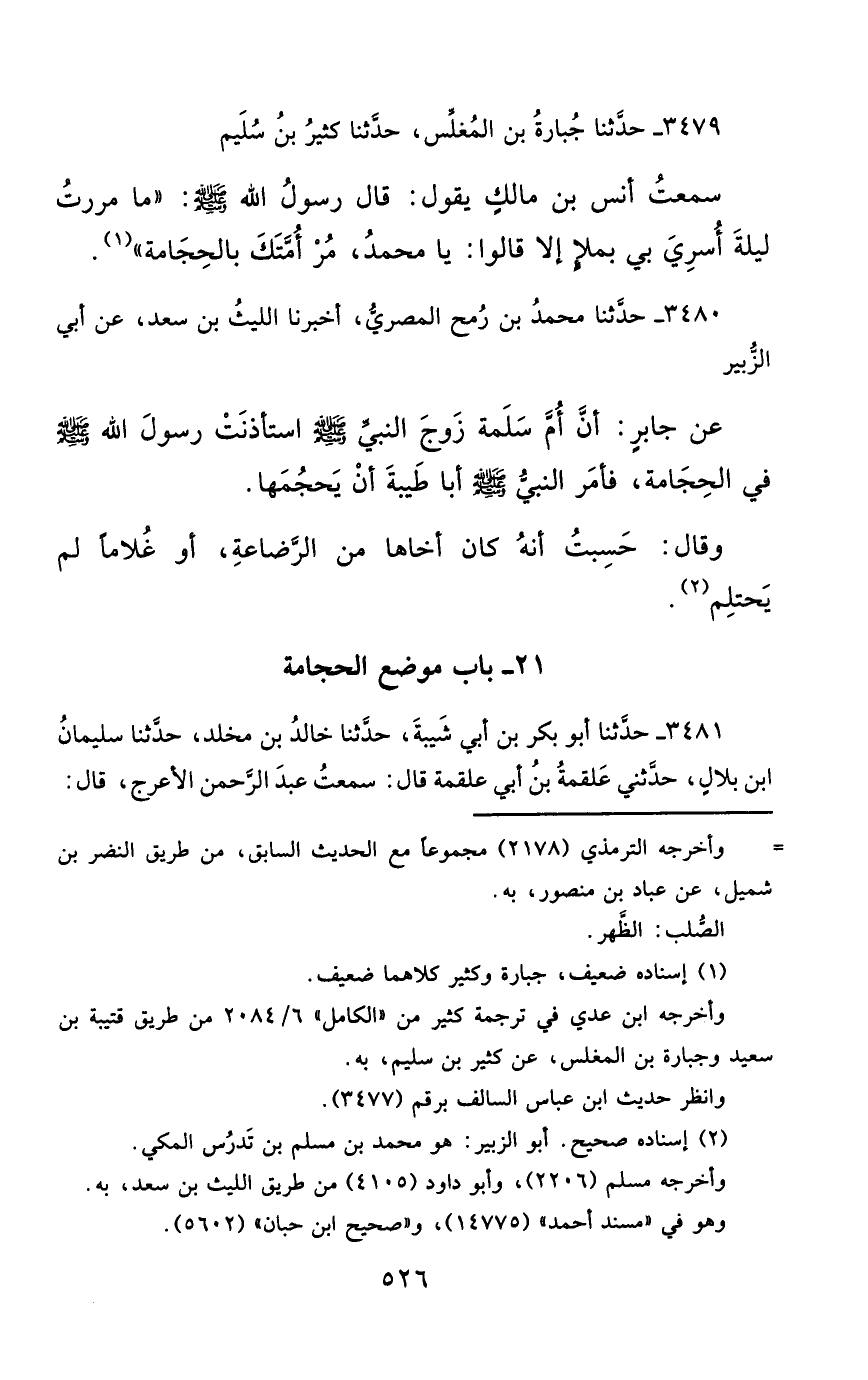 ٣٤٧٩ـ حدَّثنا جُبارةُ بن المُغلِّس، حدَّثنا كثيرُ بنُ سُلَيم
سمعتُ أنس بن مالكٍ يقول: قال رسولُ الله ﷺ: «ما مررتُ
ليلةَ أُسرِيَ بي بملإٍ إلا قالوا: يا محمدُ، مُرْ أُمَّتَكَ بالحِجَامة»(١).
٣٤٨٠ـ حدَّثنا محمدُ بن رُمح المصريُّ، أخبرنا الليثُ بن سعد، عن أبي
الزُّبير
عن جابرٍ: أنَّ أُمَّ سَلَمة زَوجَ النبيِّ ﷺ استأذنَتْ رسولَ الله ﷺ
في الحِجَامة، فأمَر النبيُّ ﷺ أبا طَيبةَ أنْ يَحجُمَها.
وقال: حَسِبتُ أنهُ كان أخاها من الرَّضاعةِ، أو غُلاماً لم
يَحتلِم(٢).
٢١ـ باب موضع الحجامة
٣٤٨١ـ حدَّثنا أبو بكر بن أبي شَيبةَ، حدَّثنا خالدُ بن مخلد، حدَّثنا سليمانُ
ابن بلالٍ، حدَّثني عَلقمةُ بنُ أبي علقمة قال: سمعتُ عبدَ الرَّحمن الأعرج، قال:
= وأخرجه الترمذي (٢١٧٨) مجموعاً مع الحديث السابق، من طريق النضر بن
شميل، عن عباد بن منصور، به.
الصُّلب: الظَّهر.
(١) إسناده ضعيف، جبارة وكثير كلاهما ضعيف.
وأخرجه ابن عدي في ترجمة كثير من «الكامل» ٦/ ٢٠٨٤ من طريق قتيبة بن
سعيد وجبارة بن المغلس، عن كثير بن سليم، به.
وانظر حديث ابن عباس السالف برقم (٣٤٧٧).
(٢) إسناده صحيح. أبو الزبير: هو محمد بن مسلم بن تَدرُس المكي.
وأخرجه مسلم (٢٢٠٦)، وأبو داود (٤١٠٥) من طريق الليث بن سعد، به.
وهو في «مسند أحمد» (١٤٧٧٥)، و«صحيح ابن حبان» (٥٦٠٢).
٥٢٦